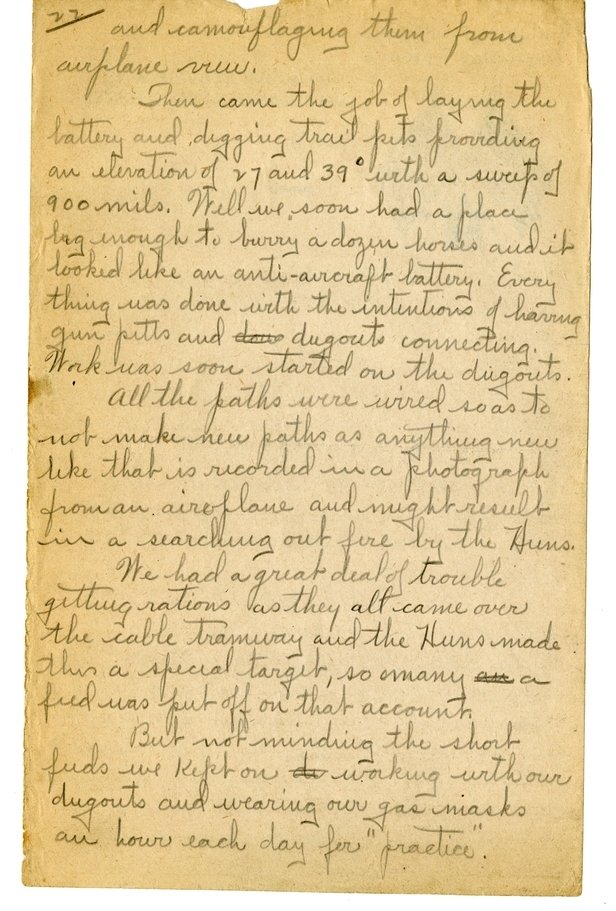 22
and camouflaging them from
airplane view.
Then came the job of laying the
battery and digging trail pits providing
an elevation of 27 and 39° with a sweep of
900 mils. Well we soon had a place
big enough to burry a dozen horses and it
looked like an anti-aircraft battery. Every
thing was done with the intentions of having
gun pitts and dugouts connecting.
Work was soon started on the dugouts.
All the paths were wired so as to
not make new paths as anything new
like that is recorded in a photograph
from an airoplane and might result
in a searching out fire by the Huns.
We had a great deal of trouble
getting rations as they all came over
the cable tramway and the Huns made
this a special target, so many an a
feed was put off on that account.
But not minding the short
feeds we kept on working with our
dugouts and wearing our gas masks
an hour each day for "practice".